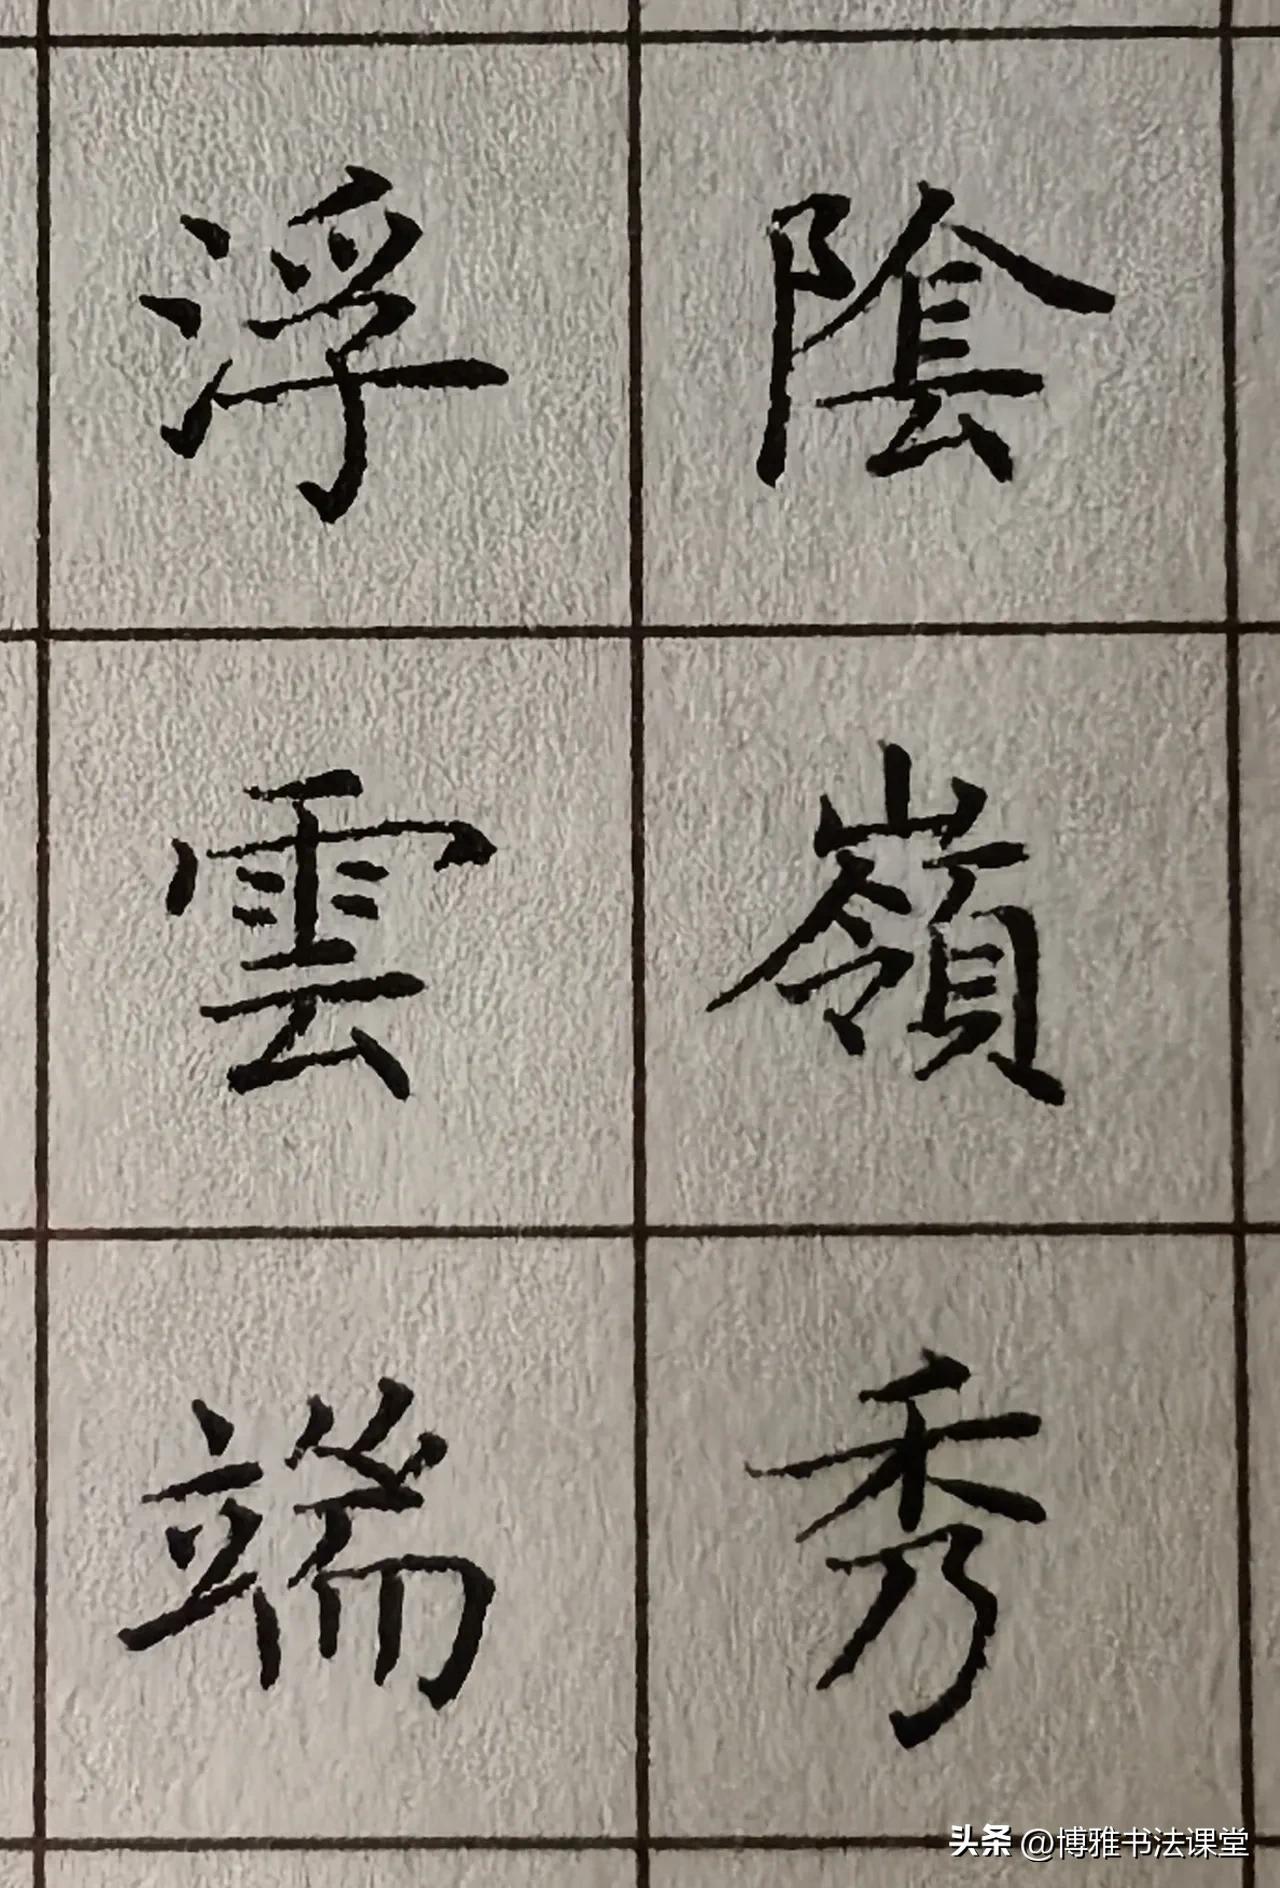 陰嶺秀
浮雲端
头条 @博雅书法课堂